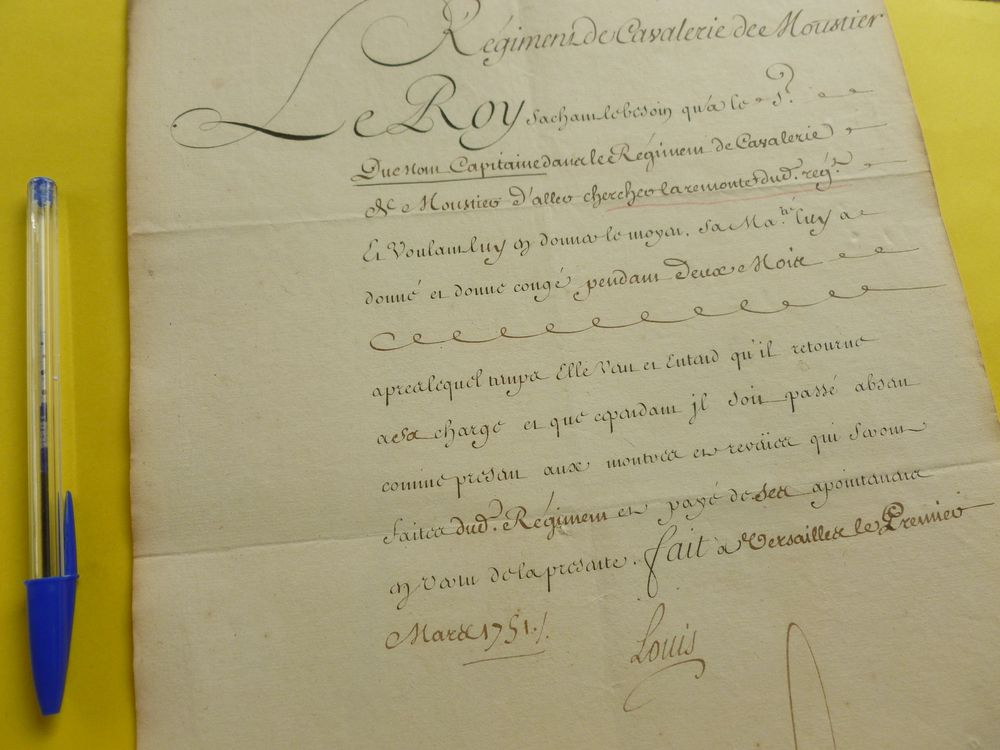 Régiment de Cavalerie de Moustier
Le Roy sachant le besoin qu'a le S.r
Capitaine dans le Régiment de Cavalerie
de Moustier d'aller chercher la remonte dud. rég.t
Et Voulant luy en donner le moyen, Sa Ma.té luy a
donné et donne congé pendant Deux Mois
apres lequel temps Elle Veut et Entend qu'il retourne
a sa charge et que cependant jl soit passé absent
comme present aux montres et reveües qui seront
faites dud. Régiment et payé de ses apointements
en Vertu de la presente. fait a Versailles le Premier
Mars 1751./.
Louis